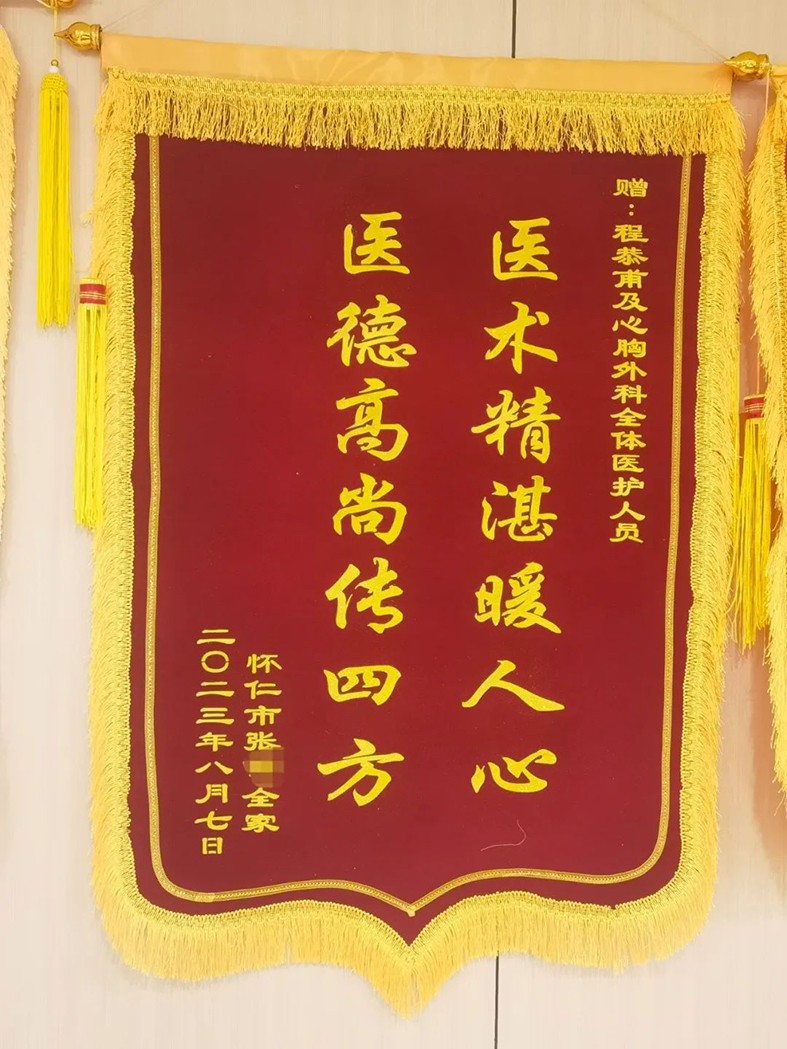 赠：程恭甫及心胸外科全体医护人员
医术精湛暖人心
医德高尚传四方
怀仁市张全家
二〇二三年八月七日